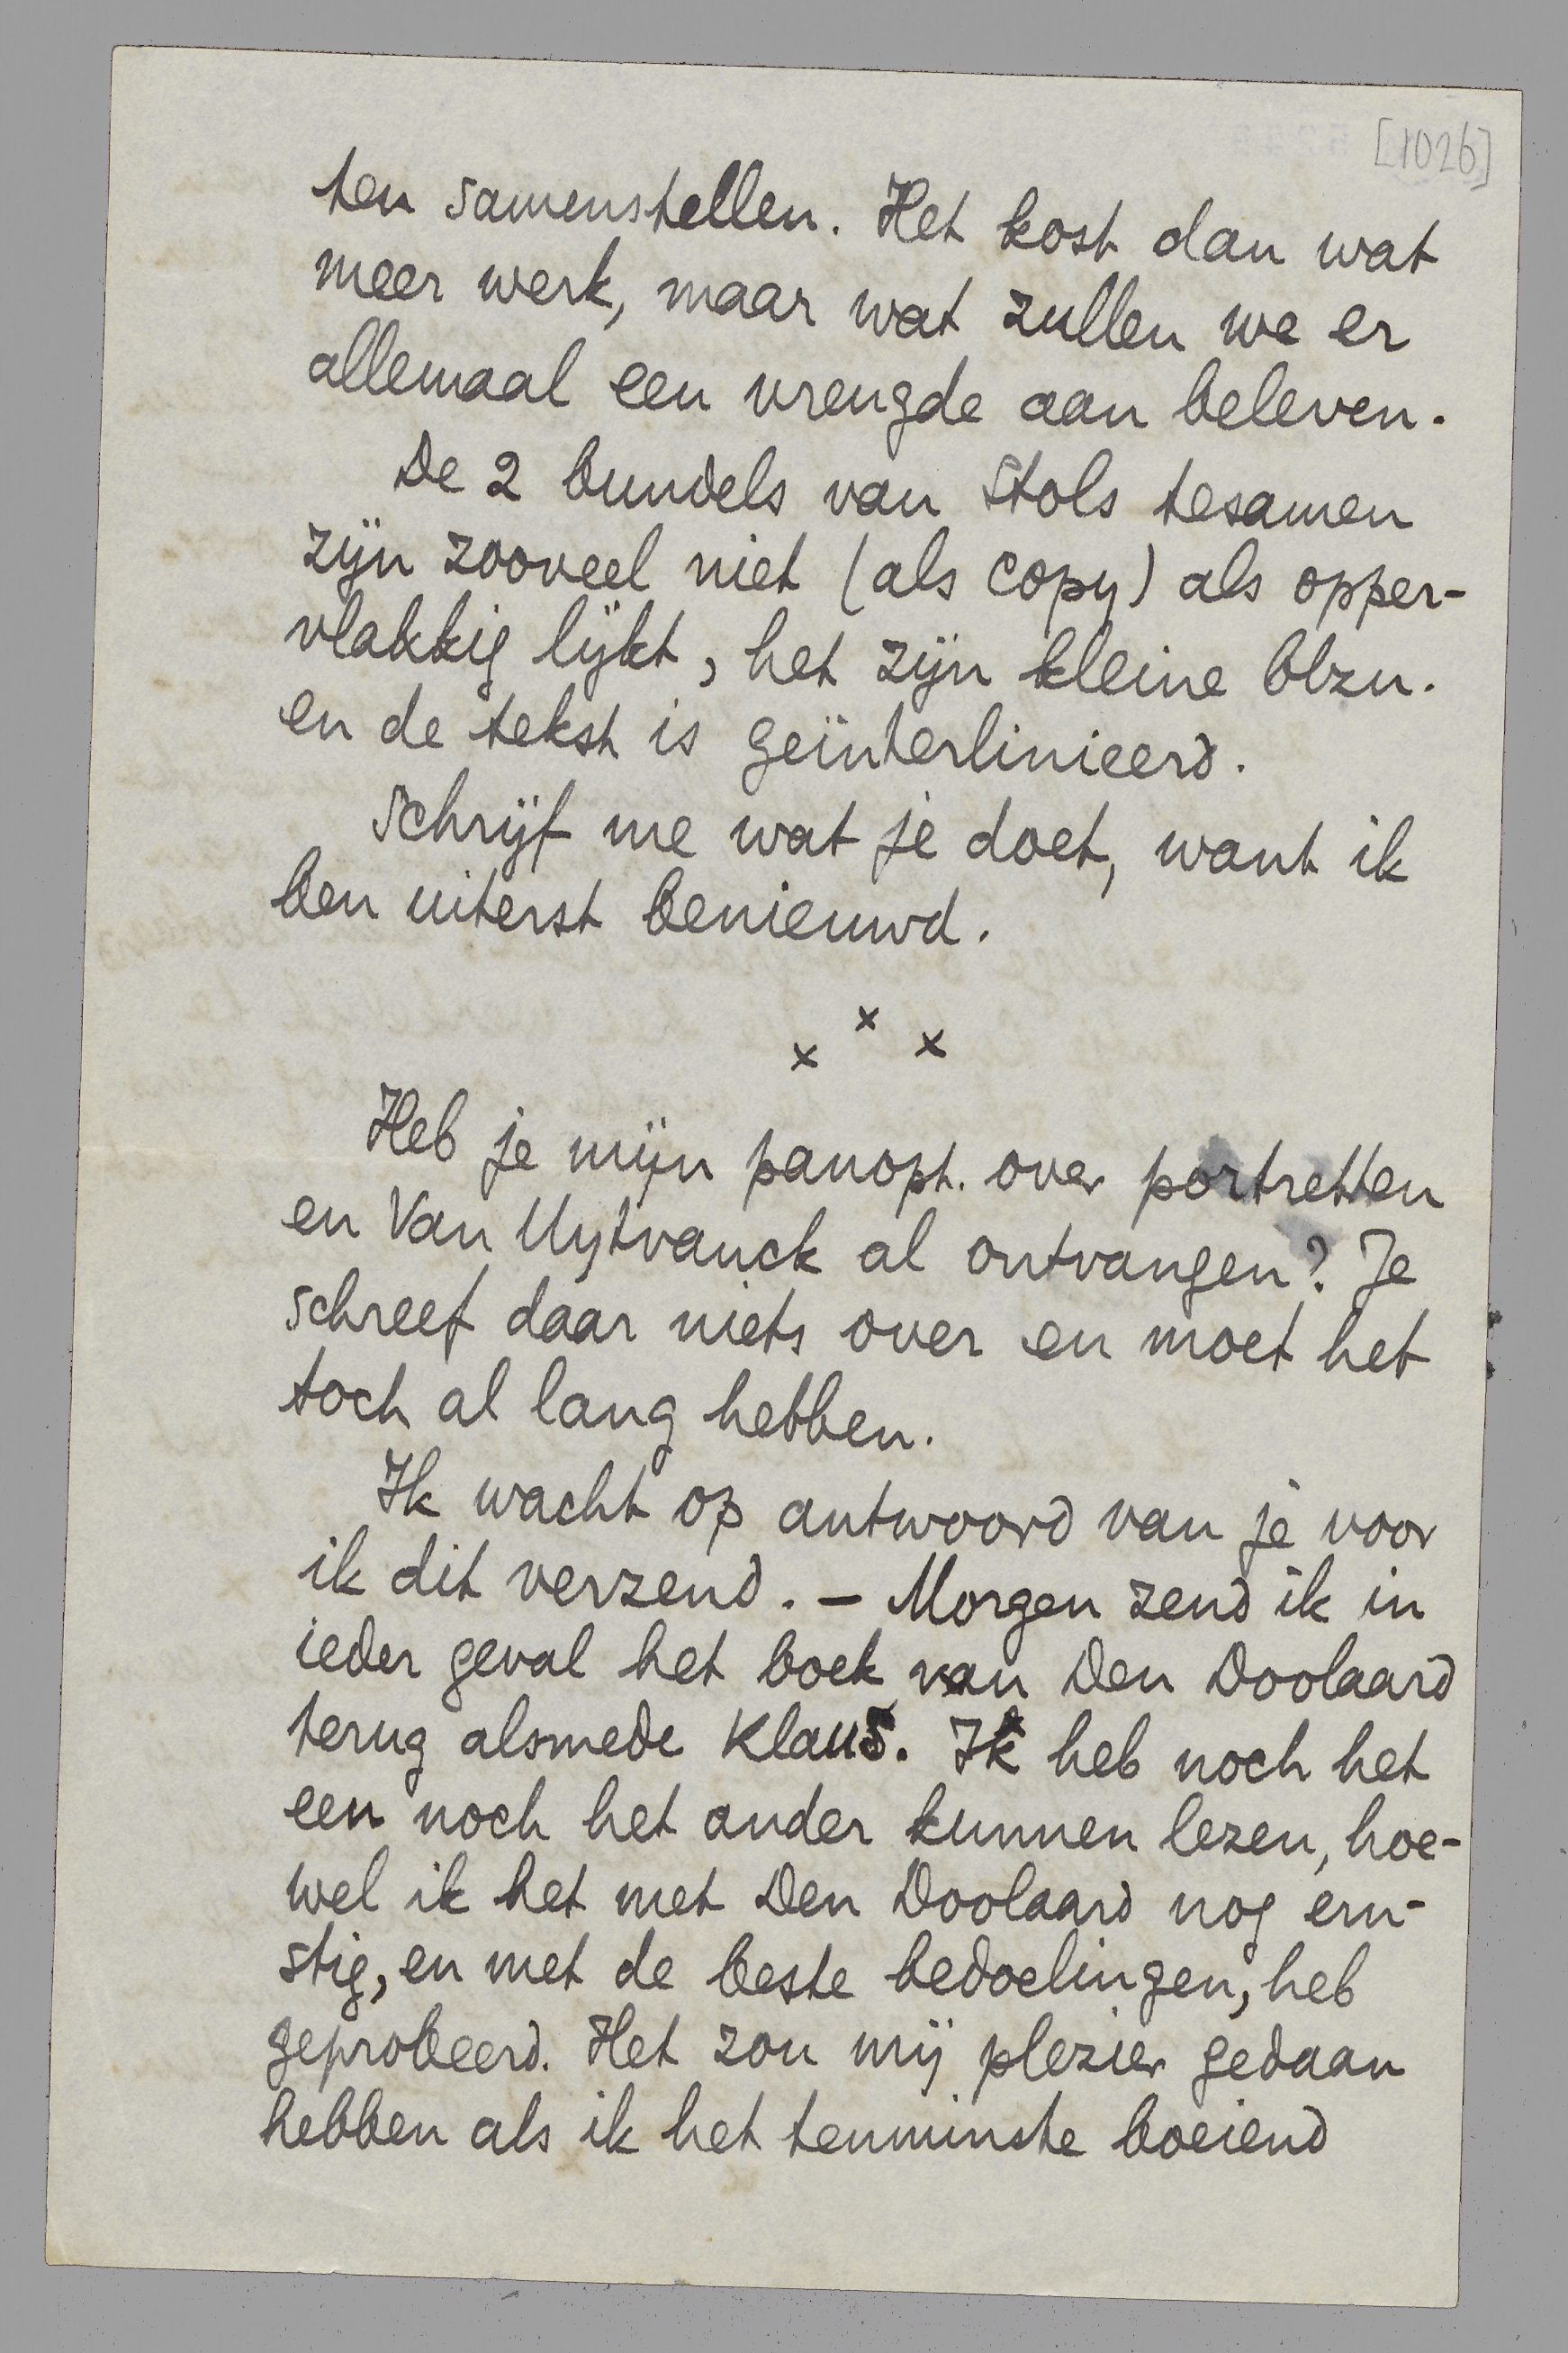 [1026]
ten samenstellen. Het kost dan wat
meer werk, maar wat zullen we er
allemaal een vreugde aan beleven.
De 2 bundels van Stols tesamen
zijn zooveel niet (als copy) als opper-
vlakkig lijkt, het zijn kleine blzn.
en de tekst is geïnterlinieerd.
Schrijf me wat je doet, want ik
ben uiterst benieuwd.
x x x
Heb je mijn panopt. over portretten
en Van Uytvanck al ontvangen? Je
schreef daar niets over en moet het
toch al lang hebben.
Ik wacht op antwoord van je voor
ik dit verzend. – Morgen zend ik in
ieder geval het boek van Den Doolaard
terug alsmede Klaus. Ik heb noch het
een noch het ander kunnen lezen, hoe-
wel ik het met Den Doolaard nog ern-
stig, en met de beste bedoelingen, heb
geprobeerd. Het zou mij plezier gedaan
hebben als ik het tenminste boeiend